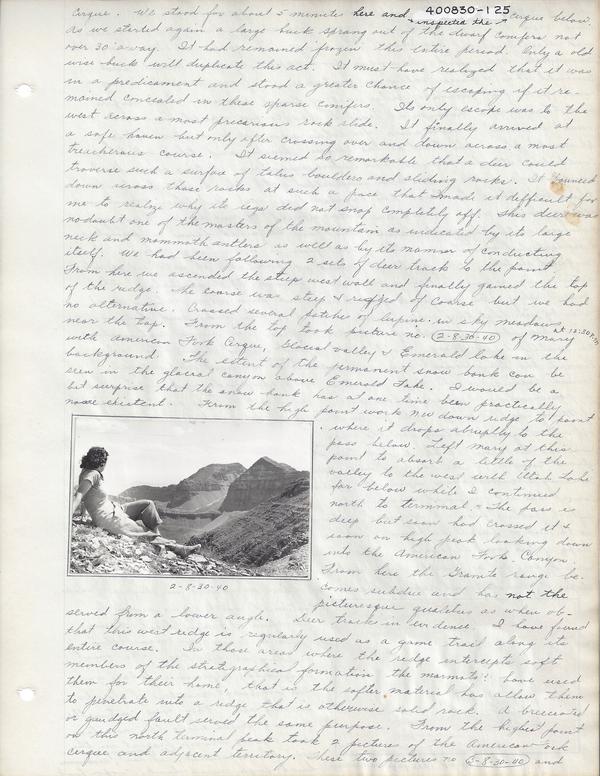 400830-125
cirque. We stood for about 5 minutes here and inspected the cirque below.
As we started again a large buck sprang out of the dwarf conifers not
over 30' away. It had remained frozen this entire period. Only a old
wise buck will duplicate this act. It must have realized that it was
in a predicament and stood a greater chance of escaping if it re-
mained concealed in these sparse conifers. Its only escape was to the
west across a most precarious rock slide. It finally arrived at
a safe haven but only after crossing over and down across a most
treacherous course. It siemed so remarkable that a deer could
traverse such a surface of talus boulders and sliding rocks. It bounced
down across those rocks at such a pace that made it difficult for
me to realize why its legs did not snap completely off. This deer was
no doubt one of the masters of the mountain as indicated by its large
neck and mammoth antlers as well as by its manner of conducting
itself. We had been following 2 sets of deer track to this point.
From here we ascended the steep west wall and finally gained the top
of the ridge. The course was steep & of course but we had
no alternative. Crossed several patches of alpine in sky meadows
near the top. From the top took picture no. 2-8-30-40 of Mary at 12:30 P.M.
with American Fork Cirque, Glacial valley & Emerald Lake in the
background. The extent of the permanent snow bank can be
seen in the glacial canyon above Emerald Lake. I would be a
bit surprise that the snow bank has at one time been practically
none existent. From the high point work N down ridge to point
where it drops abruptly to the
pass below. Left Mary at this
point to absorb a little of the
valley to the west with Utah Lake
far below while I continued
north to terminal. The pass is
deep but soon had crossed it &
soon on high peak looking down
into the American Fork Canyon.
From here the Granite range be-
comes subdue and has not the
picturesque qualities as when ob-
2-8-30-40
served from a lower angle. Deer tracks in evidence. I have found
that this west ridge is regularly used as a game trail along its
entire course. In those areas where the ridge intercepts soft
members of the stratigraphical formation the marmots have used
them for their home, that is the softer material has allow them
to penetrate into a ridge that is otherwise solid rock. A brecciated
or fault served the same purpose. From the highest point
on this north terminal peak took 2 pictures of the American Fork
cirque and adjacent territory. These two pictures no 3-8-30-40 and